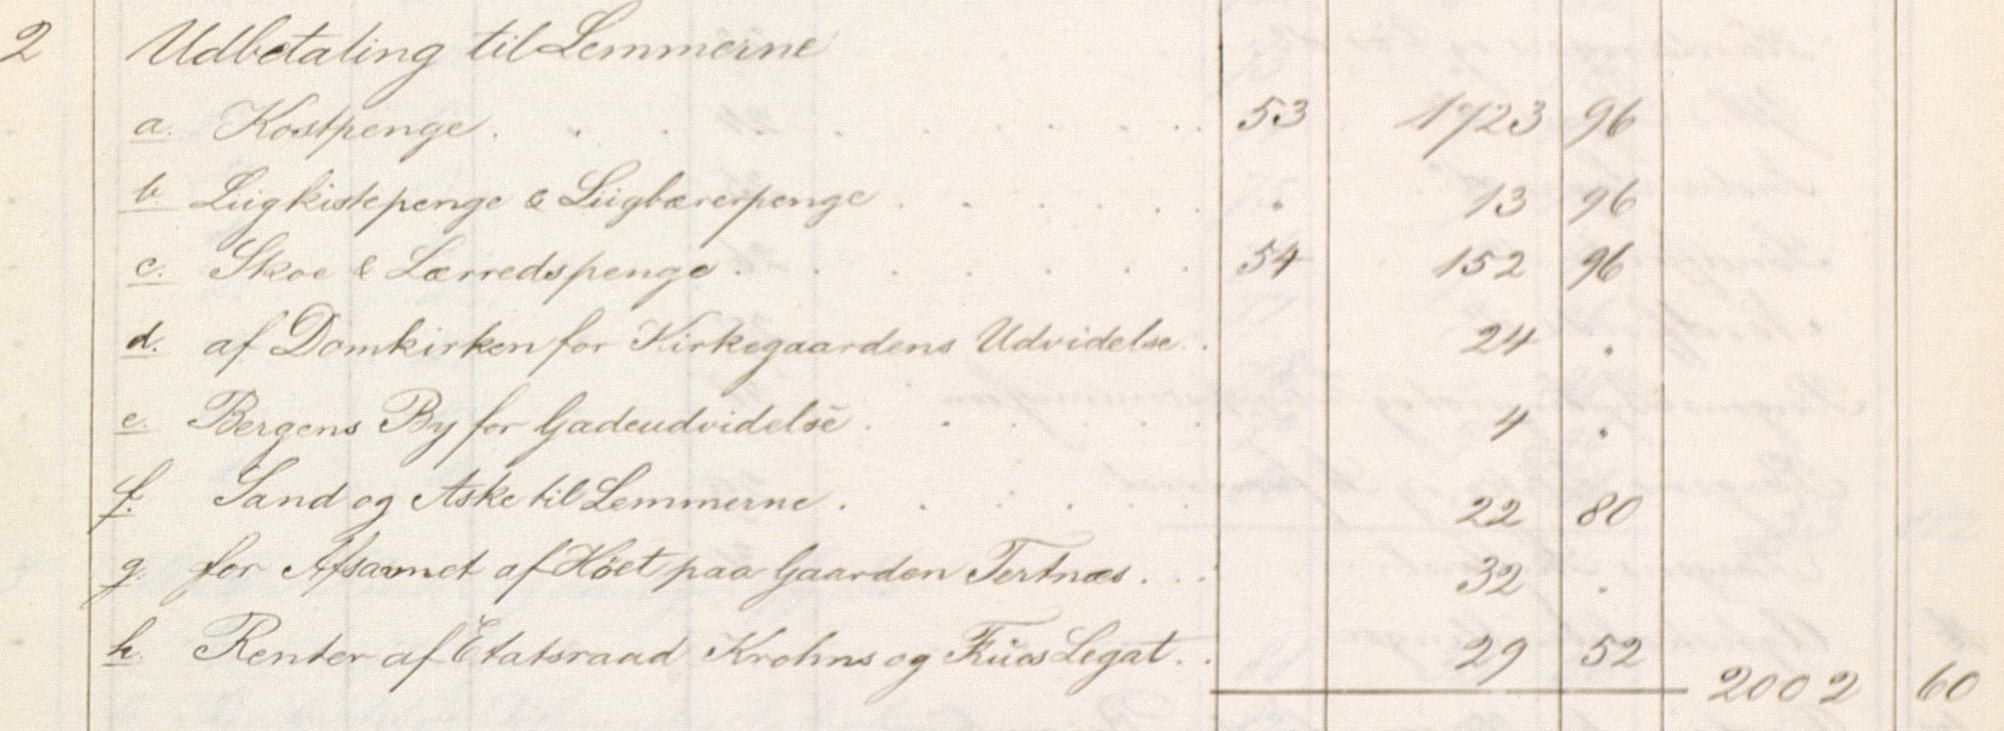 2 Udbetaling til Lemmerne
a. Kostpenge . . . . . . . . . . 53 1723 96
b. Liigkistepenge & Liigbærerpenge . . . . . . . 13 96
c. Skoe & Lærredspenge . . . . . . . 54 152 96
d. af Domkirken for Kirkegaardens Udvidelse . . 24 .
e. Bergens By for Gadeudvidelse . . . . . . 4 .
f. Sand og Aske til Lemmerne . . . . . 22 80
g. for Afsavnet af Høet paa Gaarden Tertnæs . . . 32 .
h. Renter af Etatsraad Krohns og Frues Legat . . 29 52
2002 60